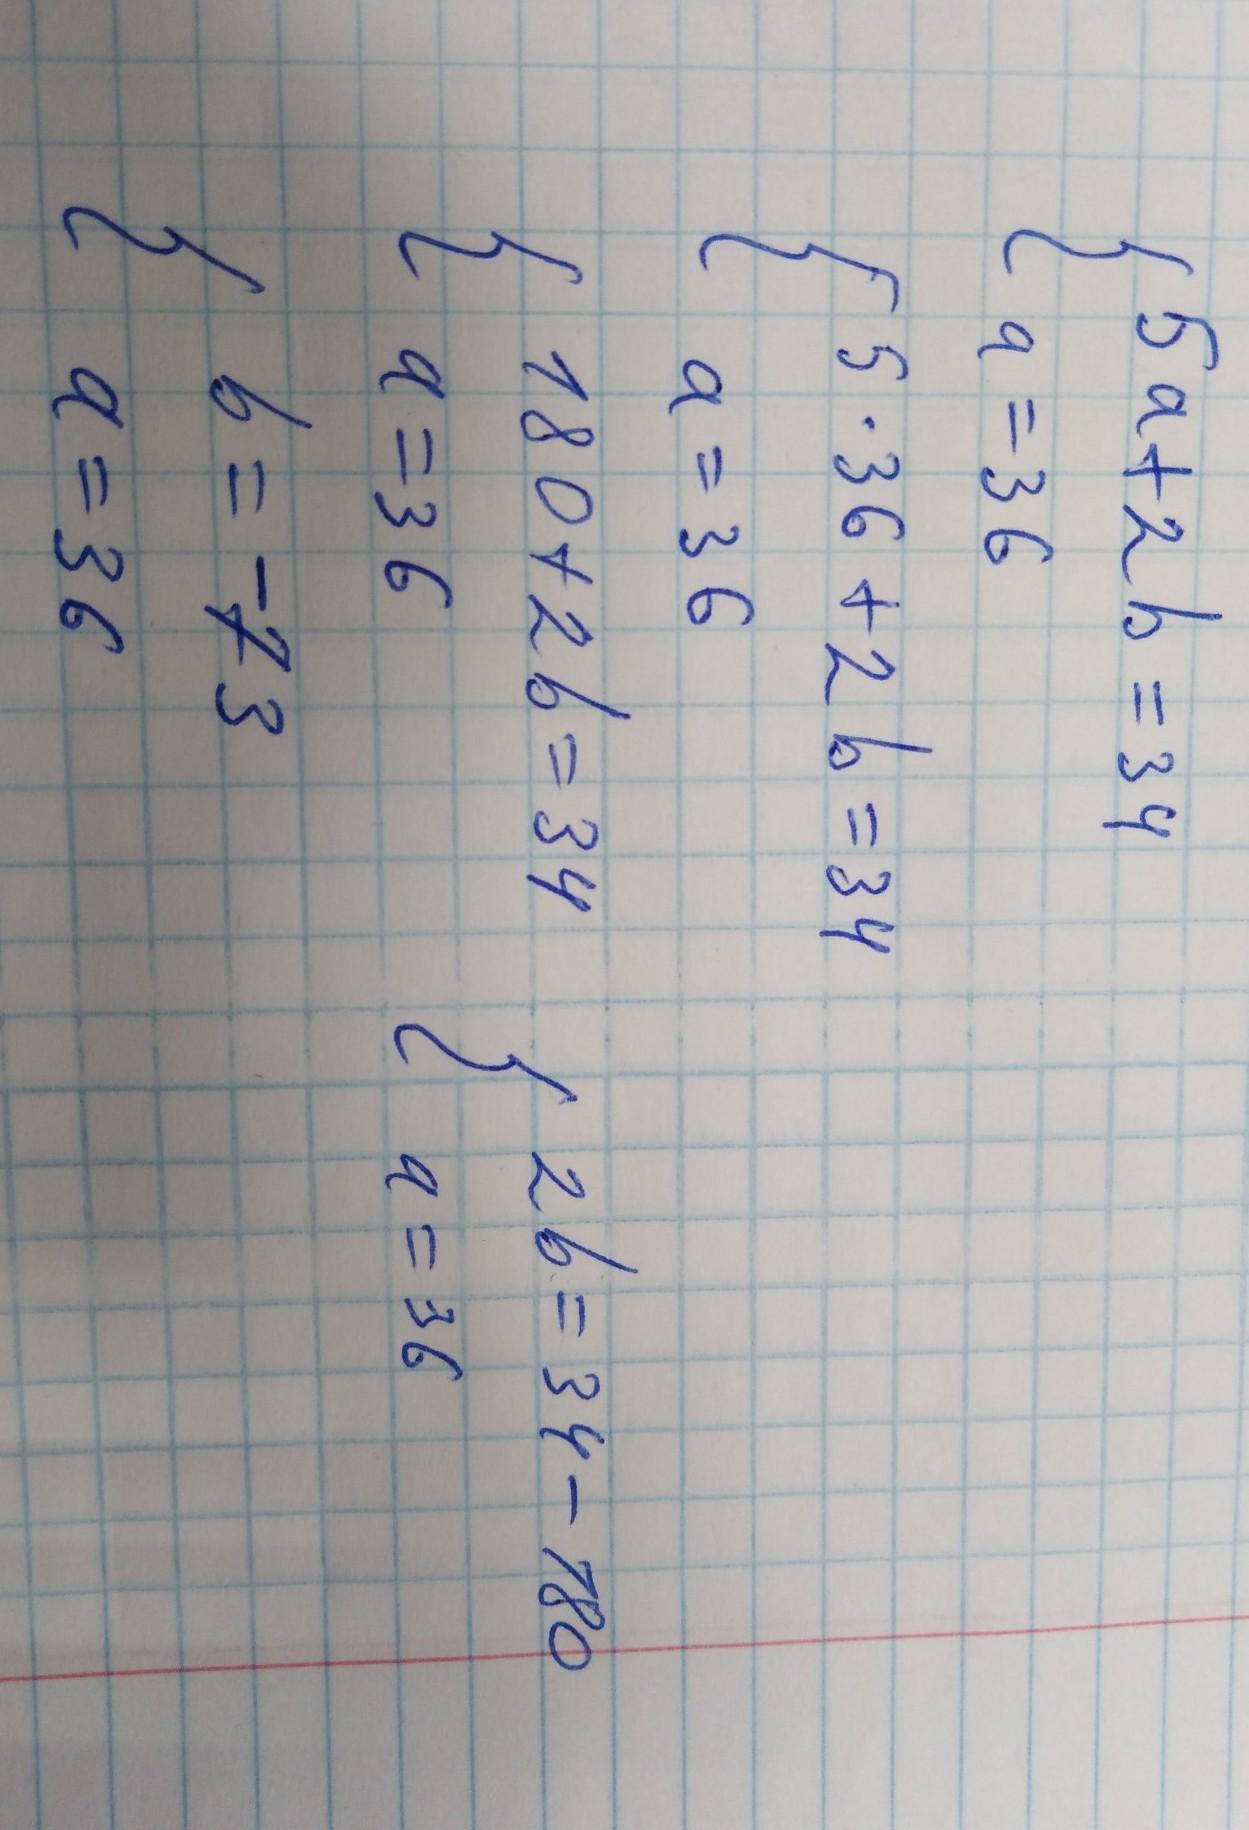 { 5a+2b=34
a=36
{ 5·36+2b=34
a=36
{ 180+2b=34
a=36
{ 2b=34-180
a=36
{ b=-73
a=36